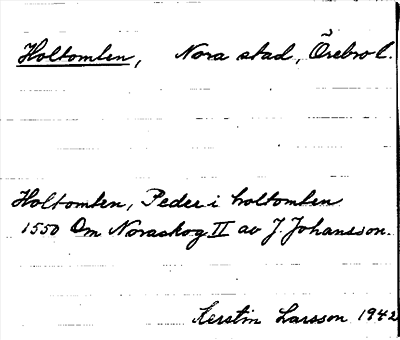 Holtomten, Nora stad, Örebro l.
Holtomten, Peder i holtomten
1550 Om Noraskog II av J. Johansson.
Kerstin Larsson 1942